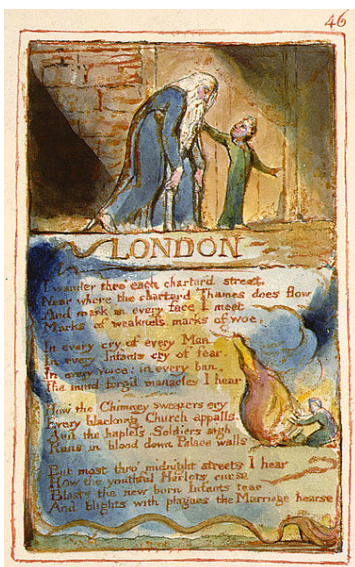 46
LONDON
I wander thro each charterd street,
Near where the charterd Thames does flow
And mark in every face I meet
Marks of weakness, marks of woe.
In every cry of every Man
In every Infants cry of fear.
In every voice: in every ban.
The mind forgd manacles I hear
How the Chimney sweepers cry
Every blackning Church appalls.
And the hapless Soldiers sigh
Runs in blood down Palace walls
But most thro midnight streets I hear
How the youthful Harlots curse
Blasts the new born Infants tear
And blights with plagues the Marriage hearse